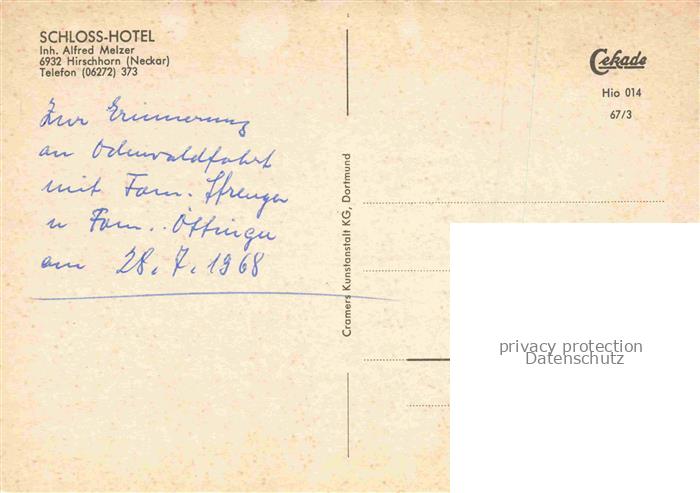 SCHLOSS-HOTEL
Inh. Alfred Melzer
6932 Hirschhorn (Neckar)
Telefon (06272) 373
Cekade
Hio 014
67/3
Zur Erinnerung
an Odenwaldfahrt
mit Fam.
u Fam. Öttinger
am 28. 7. 1968
Cramers Kunstanstalt KG, Dortmund
privacy protection
Datenschutz